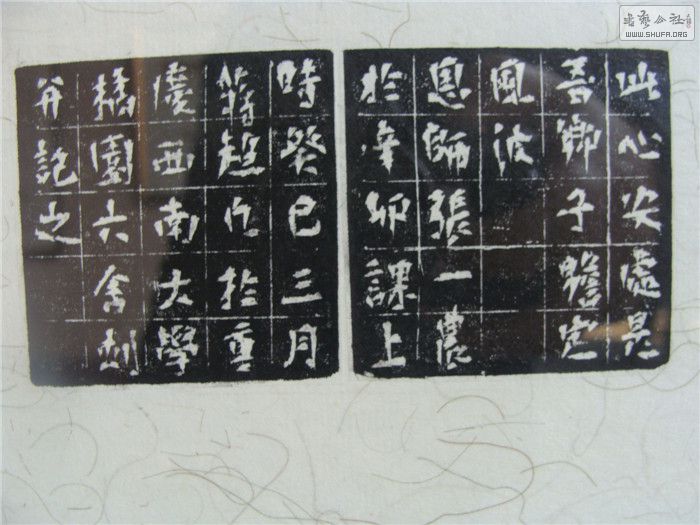 此心安處是
吾鄉子瞻定
風波
恩師張一農
於辛卯課上
時癸巳三月
蔣趙於重
慶西南大學
橘園六舍刻
并記之
書藝公社
WWW.SHUFA.ORG